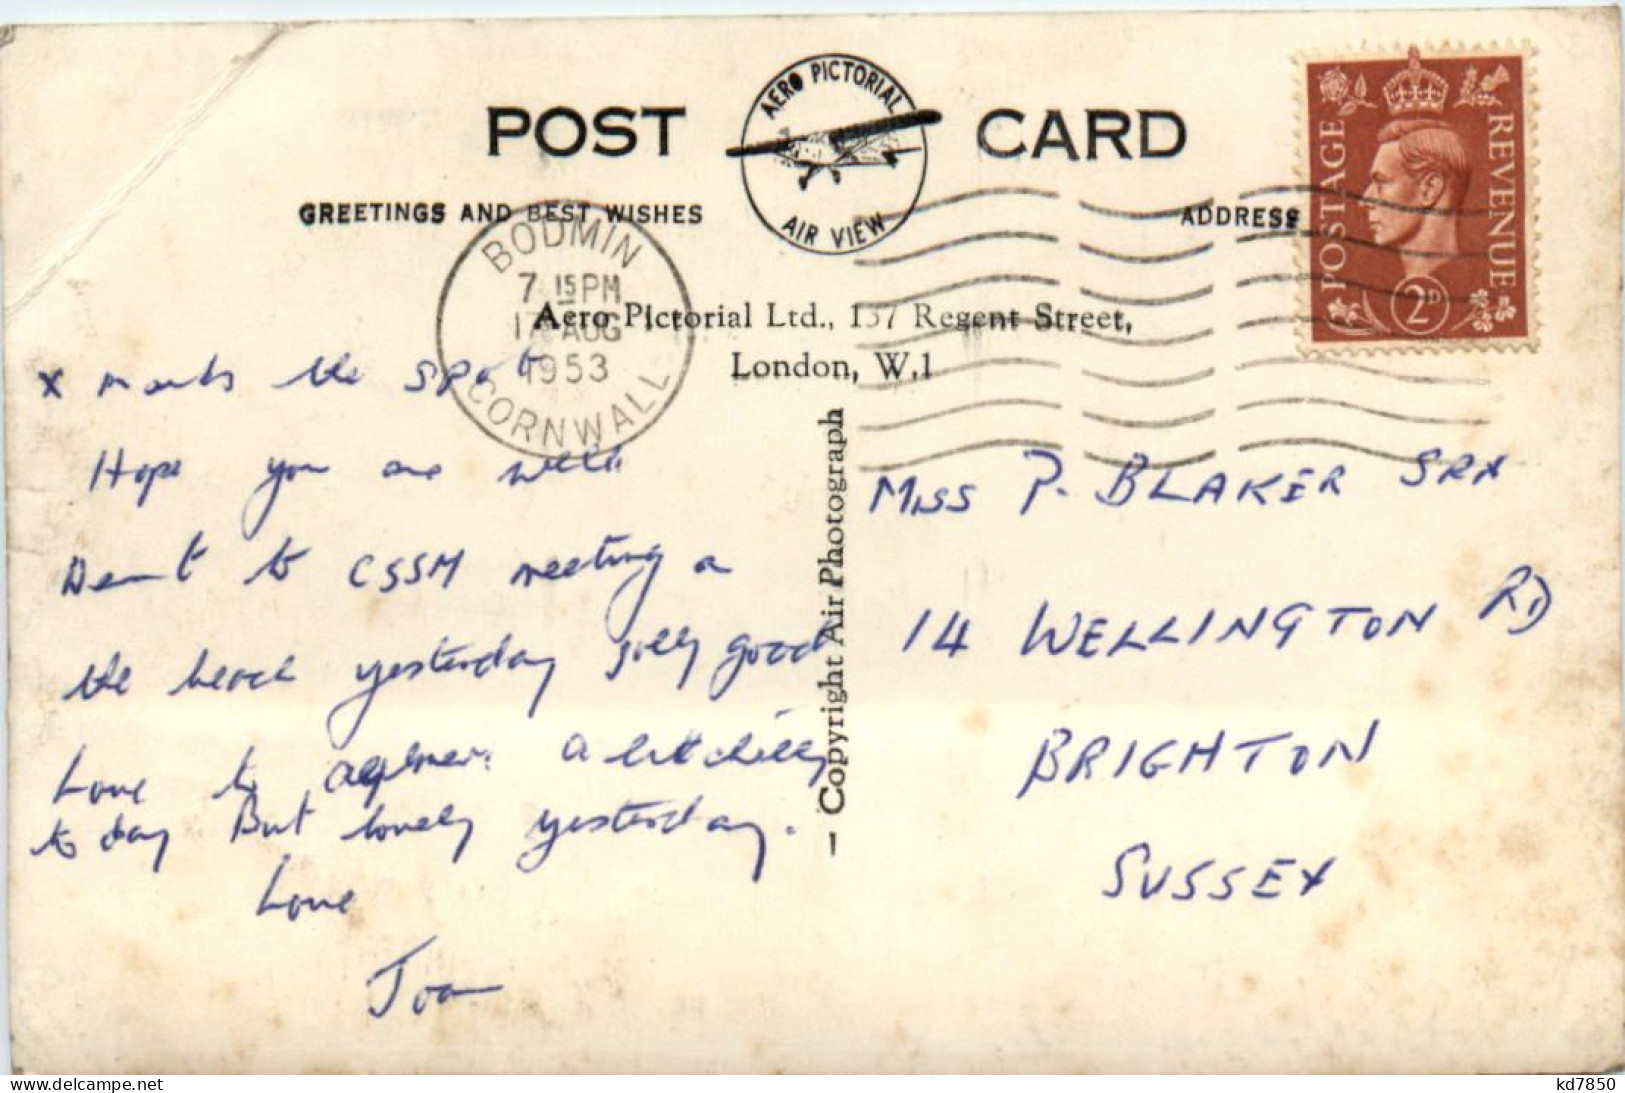 POST CARD
AERO PICTORIAL
AIR VIEW
GREETINGS AND BEST WISHES
ADDRESS
POSTAGE
REVENUE
2D
BODMIN
7 15 PM
17 AUG
1953
CORNWALL
Aero Pictorial Ltd., 137 Regent Street,
London, W.1
— Copyright Air Photograph
x marks the spot
Hope you are well
Went to CSSM meeting on
the beach yesterday jolly good
Love to a bit chilly
to day But lovely yesterday.
Love
Joan
MISS P. BLAKER SRN
14 WELLINGTON RD
BRIGHTON
SUSSEX
www.delcampe.net
kd7850